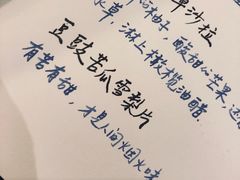 沙拉
水草,淋上橄榄油醋
柚子,酸甜的芒果,还
豆豉苦瓜雪梨片
有苦有甜,才是人间烟火味